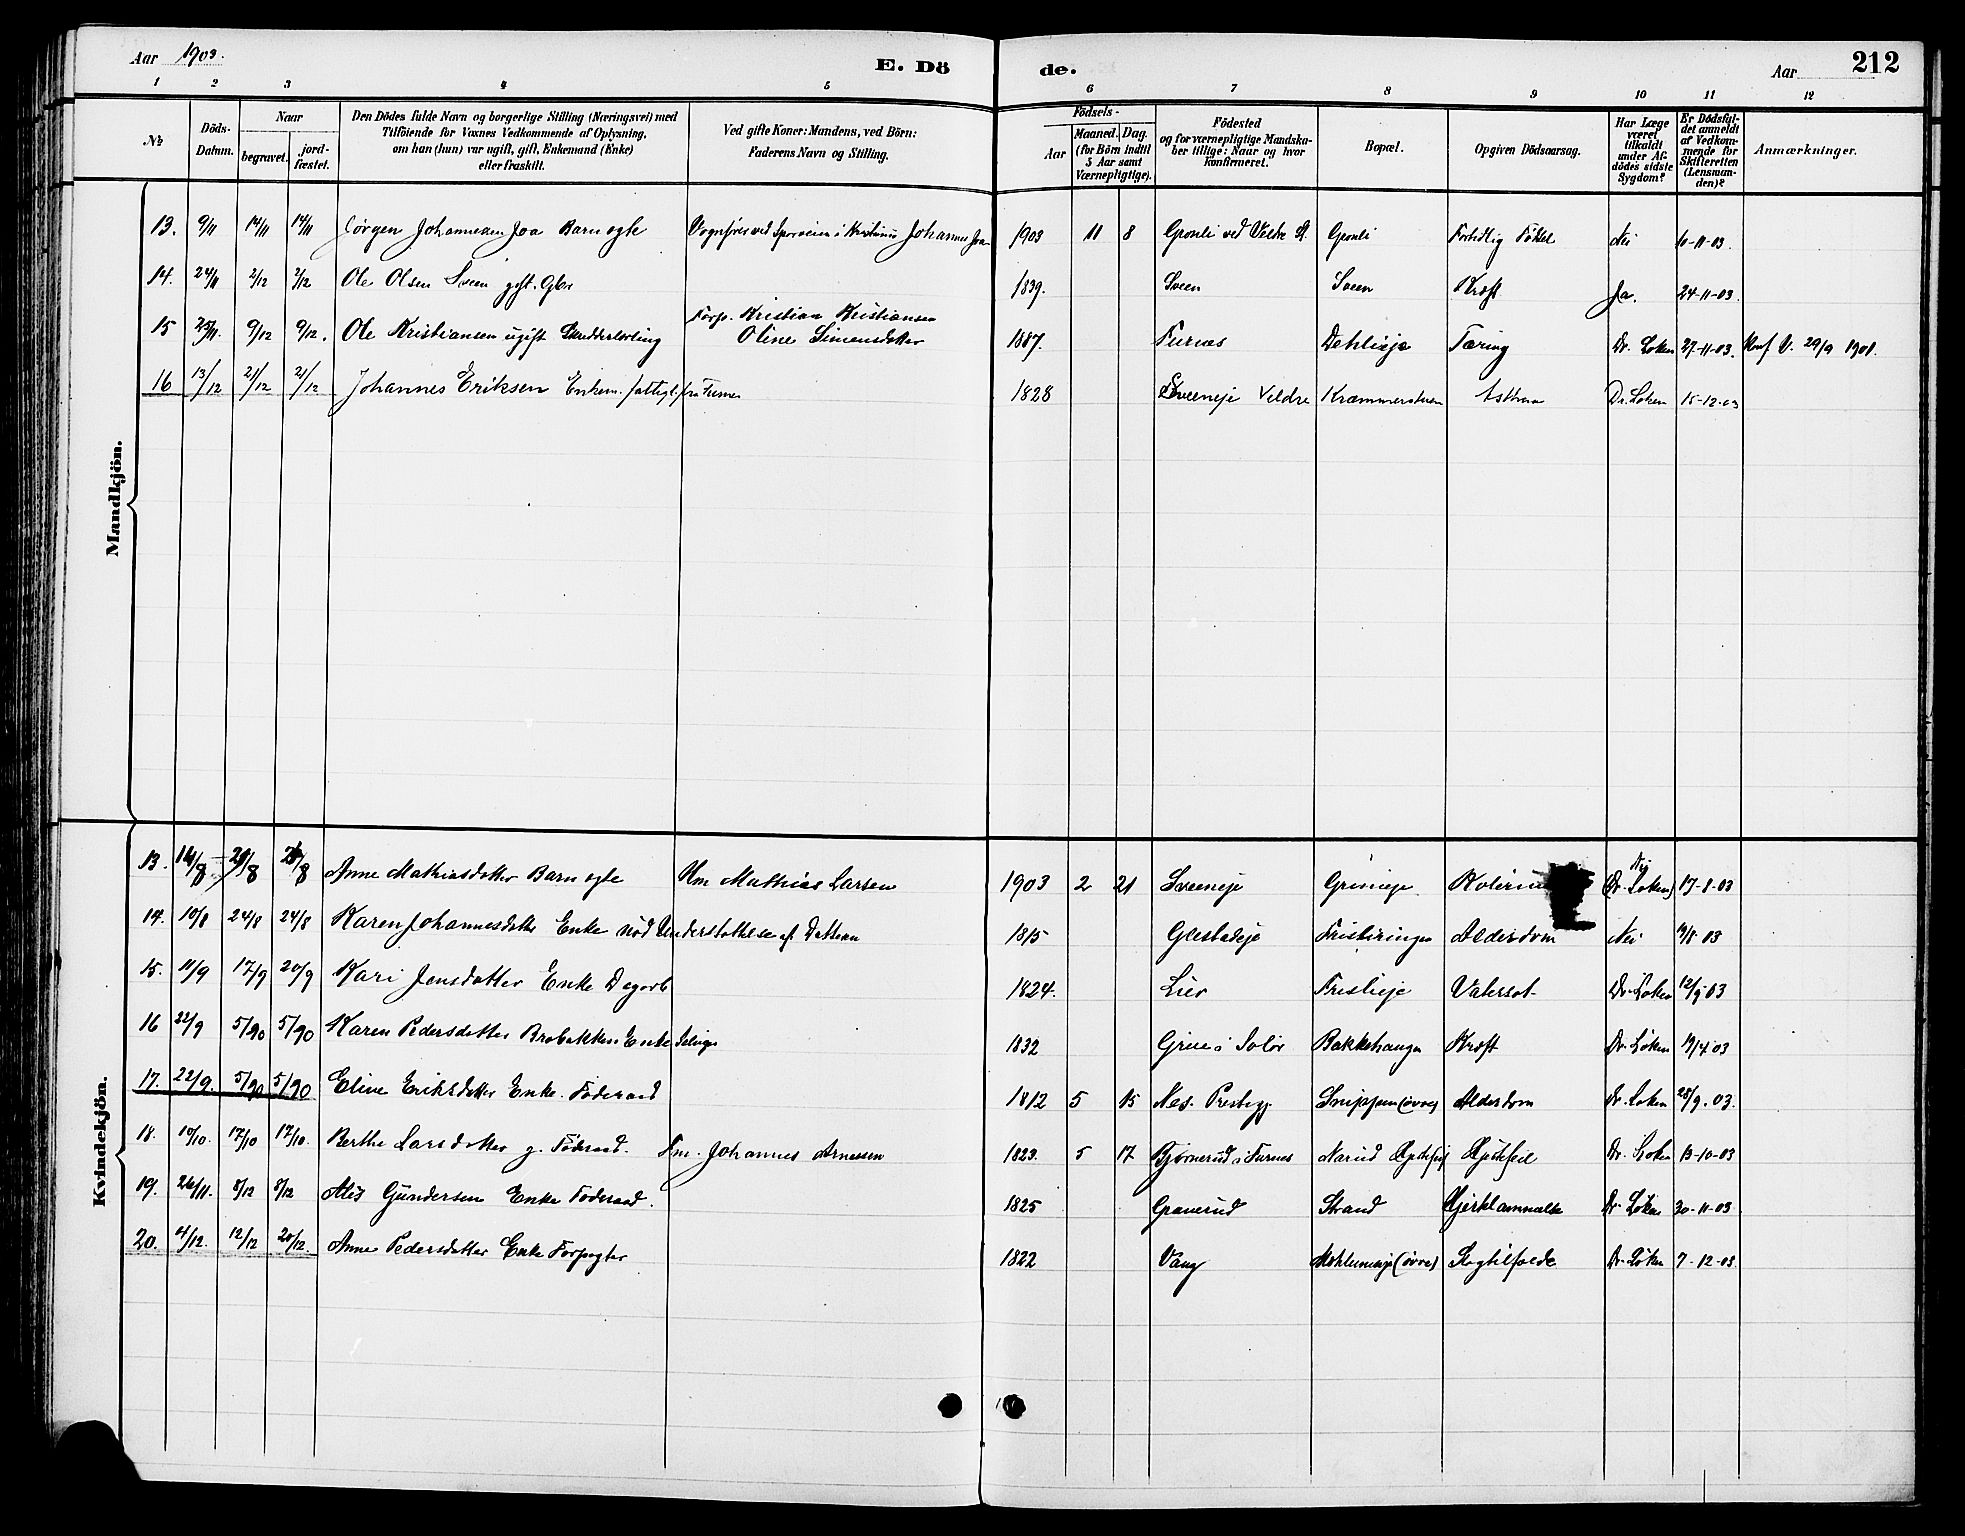 Aar 1903.
E. Dö
de.
Aar
212
1 2 3 4 5 6 7 8 9 10 11 12
№
Döds-
Datum.
Naar
begravet.
jord-
fæstet.
Den Dödes fulde Navn og borgerlige Stilling (Næringsvei) med
Tilföiende for Voxnes Vedkommende af Oplysning,
om han (hun) var ugift, gift, Enkemand (Enke)
eller fraskilt.
Ved gifte Koner: Mandens, ved Börn:
Faderens Navn og Stilling.
Födsels-
Aar
Maaned. Dag.
(for Börn indtil
5 Aar samt
Værnepligtige).
Födested
og for værnepligtige Mandska-
ber tillige: Naar og hvor
konfirmeret.
Bopæl.
Opgiven Dödsaarsag.
Har Læge
været
tilkaldt
under Af-
dödes sidste
Sygdom?
Er Dödsfal-
det anmeldt
af Vedkom-
mende for
Skifteretten
(Lensman-
den)?
Anmærkninger.
Mandkjön.
13. 9/11 14/11 14/11 Jörgen Johannesen Joa Barn ogte Vognfører ved Sporveien i Kristiania Johannes Joa 1903 11 8 Gronli ved Veldre St. Gronli Fortidlig Födsel Nei 10-11-03.
14. 24/11 2/12 2/12 Ole Olsen Sveen gift. Gbr 1839. Sveen Sveen Kræft Ja. 24-11-03.
15 25/11 9/12 9/12. Ole Kristiansen ugift Skredderlærling Forp. Kristian Kristiansen
Oline Simensdatter 1887. Furnæs Dehlieje Tæring Dr. Løken 27-11-03. Konf V. 29/9 1901.
16 13/12 21/12 21/12 Johannes Eriksen Enkem. fattigl. fra Furnes 1828 Sveeneje Veldre Kræmmerstuen Asthma Dr. Løken 15-12-03
Kvindekjön.
13. 14/8 21/8 21/8 Anne Mathiasdatter Barn ogte Hm Mathias Larsen 1903 2 21 Sveeneje Grineje Nej (Dr. Løken) 17-8-03
14. 10/8 24/8 24/8 Karen Johannesdatter Enke nöd Understøttelse af Datteren 1815 Glestadeje Fristiringen Alderdom Nei 19/8-03
15. 11/9 17/9 20/9 Kari Jensdatter Enke Dagarb 1824. Lier Fristieje Vatersot Dr. Løken 12/9 03
16 22/9 5/90 5/90 Karen Pedersdatter Brobakken Enke 1832 Grue i Solör Bakkehaugen Kræft Dr. Løken 03
17. 22/9. 5/90 5/90 Eline Eriksdatter Enke. Föderaad 1812 5 15 Næs. Prestegj. Snippen (övre) Alderdom Dr. Løken 28/9. 03.
18. 10/10. 17/10 17/10. Berthe Larsdatter g. Föderaad. Fm. Johannes Arnessen 1823. 5 17 Bjørnerud i Furnes Narud Hjertfeil Dr. Løken 13-10-03
19. 26/11. 8/12 8/12 Alis Gundersen Enke Föderaad. 1825 Graverud Strand Hjertelammelse Dr. Løken 30-11-03
20. 4/12. 12/12 20/12. Anne Pedersdatter Enke Forpagter 1822 Vang (övre) Slagtilfælde Dr. Løken 7-12-03.